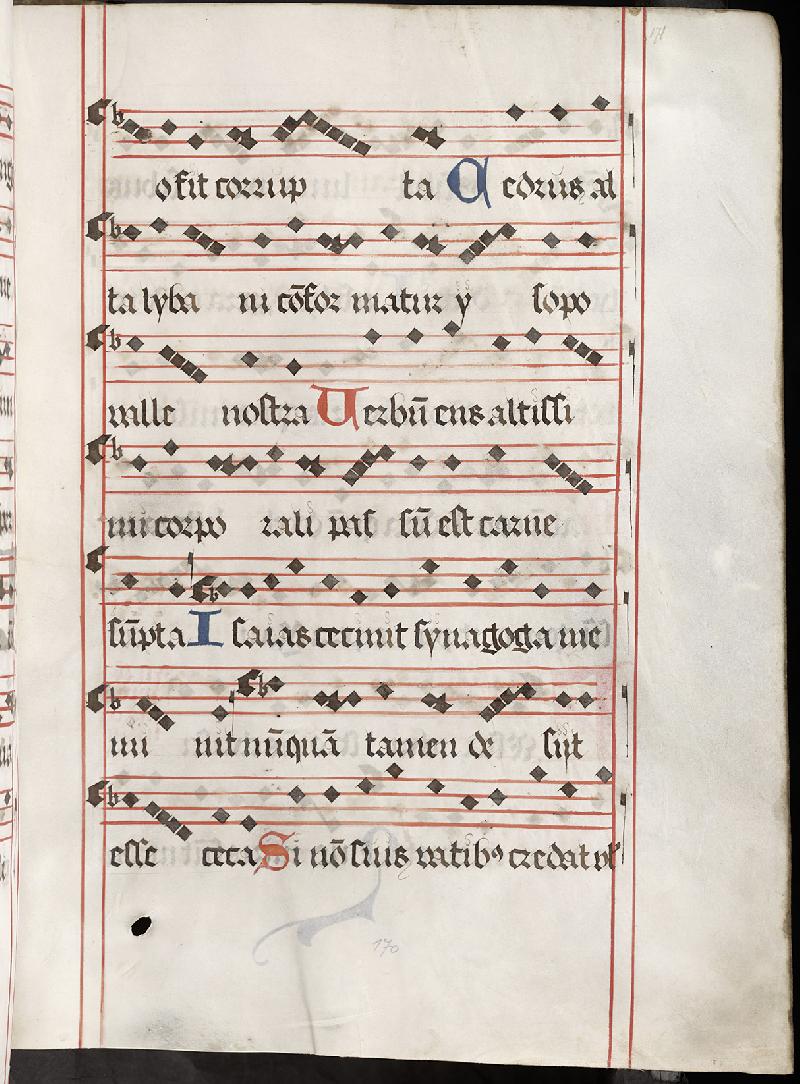 o fit corrup ta Cedrus al
ta lyba ni cōfor matur ysopo
valle nostra Verbū ens altissi
mi corpo rali pas sū est carne
sūpta Isaias cecinit synagoga me
mi nit nūquā tamen de sijt
esse ceca Si nō suis vatibꝰ credat vl
170